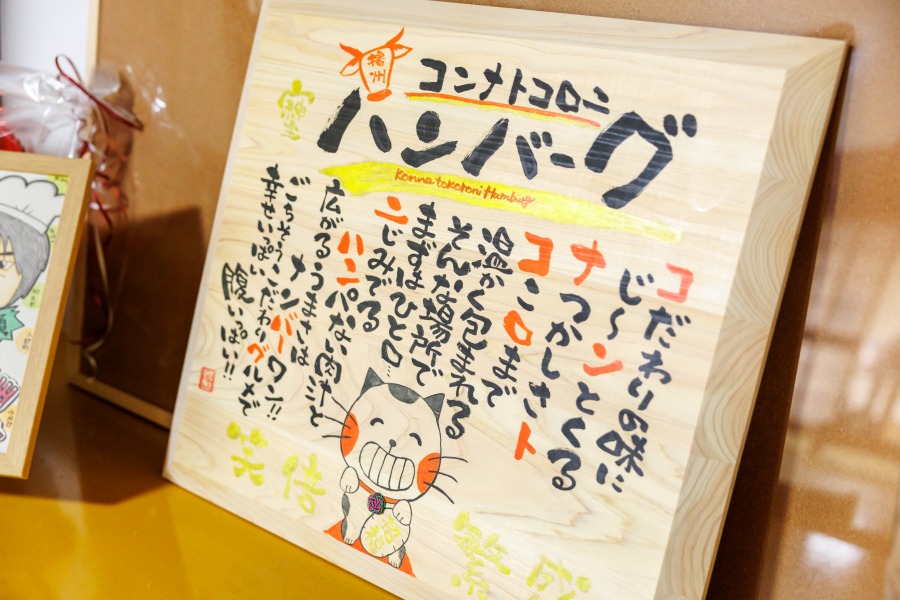 播州
コンナトコロニ
ハンバーグ
Konna tokoroni Hamburg
コだわりの味に
じ〜ンとくる
ナつかしさト
コころまで
温かく包まれる
そんな場所で
まずはひと口…
ニじみでる
ハンパない肉汁と
広がるうまさは
ナンバーワン!!
ごちそう、こだわりグルメで
幸せいっぱい
腹いっぱい!!
笑倍
繁盛